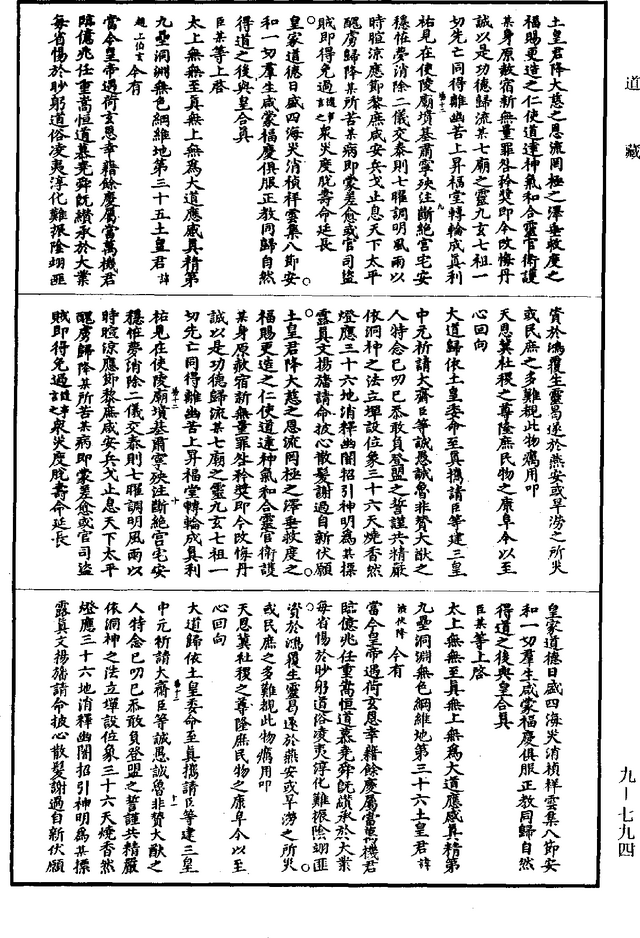 道藏
土皇君降大慈之恩流罔極之澤垂救度之
福賜更造之仁使道達神氣和合靈官衛護
某身原赦宿新無量罪咎矜奬即令改悔丹
誠以是功德歸流某七廟之靈九玄七祖一
切先亡同得離幽苦上昇福堂轉輪成真利
祐見在使陵廟墳基肅寧殃注斷絕宮宅安
穩怪夢消除二儀交泰則七曜調明風雨以
時暄涼應節黎庶咸安兵戈止息天下太平
醜虜歸降某所苦某病即蒙差愈或官司盜
賊即得免過言遣事之衆災度脫壽命延長
皇家道德日盛四海災消禎祥雲集八節安
和一切羣生咸蒙福慶俱服正教同歸自然
得道之後與皇合真
臣某等上啓
太上無無至真無上無爲大道應感具精第
九壘洞淵無色綱維地第三十五土皇君諱
趙上伯玄今有
當今皇帝過荷玄恩幸藉餘慶屬當萬機君
臨億兆任重嵩恒道慕堯舜旣纘承於大業
每省惕於眇躬道俗凌夷淳化難振陰翊匪
資於鴻覆生靈曷遂於燕安或旱澇之所災
或民庶之多難覩此物癘用叩
天恩冀社稷之尊隆庶民物之康阜今以至
心回向
大道歸依土皇委命至真擕請臣等建三皇
中元祈請大齋臣等誠愚誠魯非贊大猷之
人特念已叨已忝敢負登盟之誓謹共精嚴
依洞神之法立壇設位象三十六天燒香然
燈應三十六地消釋幽闇招引神明爲其標
露真文揚旛請命披心散髮謝過自新伏願
土皇君降大慈之恩流罔極之澤垂救度之
福賜更造之仁使道達神氣和合靈官衛護
某身原赦宿新無量罪咎矜奬即令改悔丹
誠以是功德歸流某七廟之靈九玄七祖一
切先亡同得離幽苦上昇福堂轉輪成真利
祐見在使陵廟墳基肅寧殃注斷絕宮宅安
穩怪夢消除二儀交泰則七曜調明風雨以
時暄涼應節黎庶咸安兵戈止息天下太平
醜虜歸降某所苦某病即蒙差愈或官司盜
賊即得免過言遣事之衆災度脫壽命延長
皇家道德日盛四海災消禎祥雲集八節安
和一切羣生咸蒙福慶俱服正教同歸自然
得道之後與皇合真
臣某等上啓
太上無無至真無上無爲大道應感具精第
九壘洞淵無色綱維地第三十六土皇君諱
今有
當今皇帝過荷玄恩幸藉餘慶屬當萬機君
臨億兆任重嵩恒道慕堯舜旣纘承於大業
每省惕於眇躬道俗凌夷淳化難振陰翊匪
資於鴻覆生靈曷遂於燕安或旱澇之所災
或民庶之多難覩此物癘用叩
天恩冀社稷之尊隆庶民物之康阜今以至
心回向
大道歸依土皇委命至真擕請臣等建三皇
中元祈請大齋臣等誠愚誠魯非贊大猷之
人特念已叨已忝敢負登盟之誓謹共精嚴
依洞神之法立壇設位象三十六天燒香然
燈應三十六地消釋幽闇招引神明爲其標
露真文揚旛請命披心散髮謝過自新伏願
九—七九四